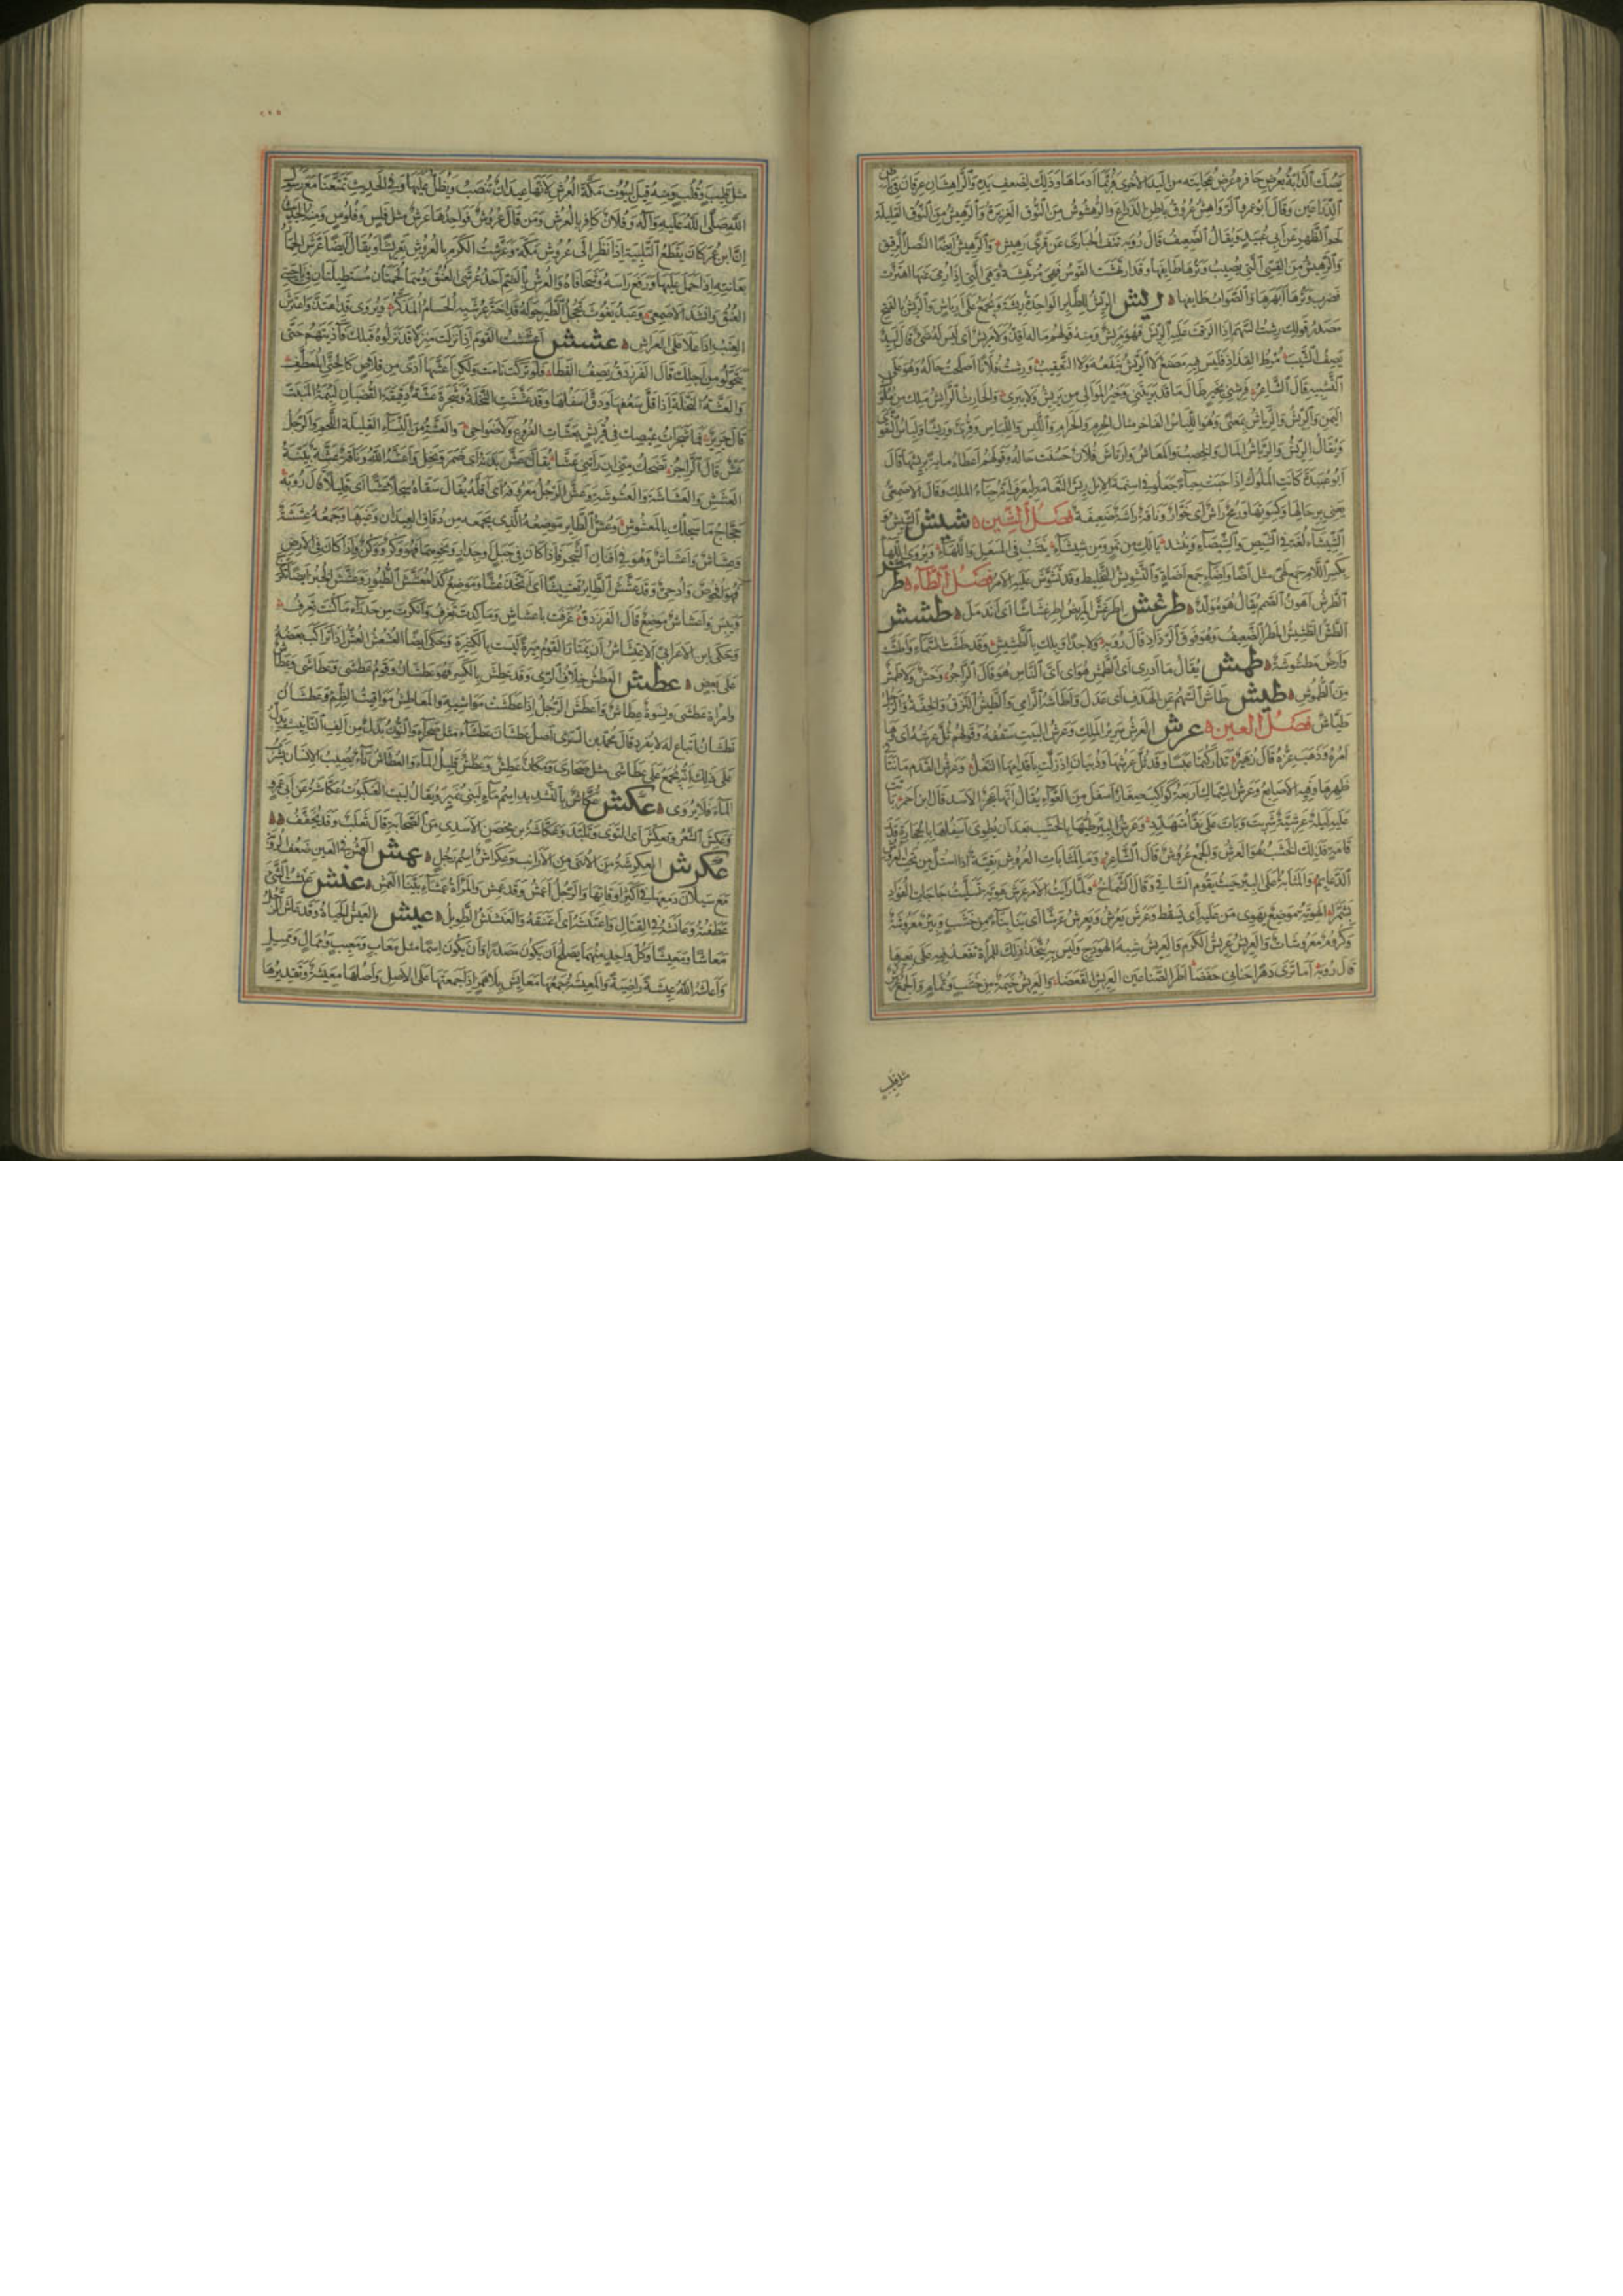 يصك الدابة بعرض حافره عرض عجايته من اليد الأخرى فربما أدماها وذلك لضعف يده والراهشان عرقان في باطن
الذراعين وقال أبو عمرو الرواهش عروق باطن الذراع والرهشوش من النوق الغزيرة والرهيش من النوق القليلة
لحم الظهر عن أبي عبيد ويقال الضعيف قال رؤبة نتف الحبارى عن قرى رهيش والرهيش أيضا النصل الرقيق
والرهيش من القسي التي يصيب وترها طائفها وقد ارتهشت القوس فهي مرتهشة وهي التي إذا رمي عنها اهتزت
فضرب وترها أبهرها والصواب طايفها ريش الريش للطاير الواحدة ريشة ويجمع على أرياش والريش بالفتح
مصدر قولك رشت السهم إذا الزقت عليه الريش فهو مريش ومنه قولهم ماله أقذ ولا مريش أي ليس له شيء قال لبيد
يصف السهم مرط القذاذ فليس فيه مصنع لا الريش ينفعه ولا التعقيب ورشت فلانا أصلحت حاله وهو على
التشبيه قال الشاعر فرشني بخير طال ما قد بريتني وخير الموالي من يريش ولا يبري والحارث الرايش ملك من ملوك
اليمن والريش والرياش بمعنى وهو اللباس الفاخر مثال الحرم والحرام واللبس واللباس وقرئ وريشا ولباس التقوى
ويقال الريش والرياش المال والخصب والمعاش وارتاش فلان حسنت حاله وقولهم أعطاه ماية بريشها قال
أبو عبيدة كانت الملوك إذا حبت حباء جعلوا في أسنمة الإبل ريش النعامة ليعرف أنه حباء الملك وقال الأصمعي
يعني برحالها وكسوتها ورمح راش أي خوار وناقة راشة ضعيفة فصل الشين شيش الشيش و
الشيشاء لغة في الشيص والشيصاء وينشد يا لك من تمر ومن شيشاء ينشب في المسعل واللهاء ويروى اللهاء
بكسر اللام جمع لهى مثل أضا وإضاء جمع أضاة والتشويش التخليط وقد تشوش عليه الأمر فصل الطاء طرش
الطرش أهون الصمم يقال هو مولد طرغش اطرغش المريض اطرغشاشا أي اندمل طشش
الطش الطشيش المطر الضعيف وهو فوق الرذاذ قال رؤبة ولا جدا وبلك بالطشيش وقد طشت السماء وأطشت
وأرض مطشوشة طمش يقال ما أدري أي الطمش هو أي أي الناس هو قال الراجز وحش ولا طمش
من الطموش طيش طاش السهم عن الهدف أي عدل وأطاشه الرامي والطيش النزق والخفة والرجل
طياش فصل العين عرش العرش سرير الملك وعرش البيت سقفه وقولهم ثل عرشه أي وها
أمره وذهب عزه قال زهير تداركتما عبسا وقد ثل عرشها وذبيان إذ زلت بأقدامها النعل وعرش القدم ما نتأ في
ظهرها وفيه الأصابع وعرش السماك أربعة كواكب صغار أسفل من العواء يقال إنها عجز الأسد قال ابن أحمر باتت
عليه ليلة عرشية شربت وبات على نقا متهدد وعرش البير طيها بالخشب بعد أن يطوى أسفلها بالحجارة قدر
قامة فذلك الخشب هو العرش والجمع عروش قال الشاعر وما لمثابات العروش بقية إذا استل من تحت العروش
الدعايم والمثابة أعلى البير حيث يقوم الساقي وقال الشماخ ولما رأيت الأمر عرش هوية تسليت حاجات الفؤاد
بشمرا الهوية موضع يهوي من عليه أي يسقط وعرش يعرش ويعرش عرشا أي بنا بناء من خشب وبير معروشة
وكروم معروشات والعريش عريش الكرم والعريش شبه الهودج وليس به يتخذ ذلك للمرأة تقعد فيه على بعيرها
قال رؤبة أما ترى دهرا حناني حفضا أطر الصناعين العريش القعضا والعريش خيمة من خشب وثمام والجمع عرش
مثل قليب
٢٢٥
مثل قليب وقلب ومنه قيل لبيوت مكة العرش لأنها عيدان تنصب ويظلل عليها وفي الحديث تمتعنا مع رسول
الله صلى الله عليه وآله وفلان كافر بالعرش ومن قال عروش فواحدها عرش مثل فلس وفلوس ومنه الحديث
إن ابن عمر كان يقطع التلبية إذا نظر إلى عروش مكة وعرشت الكرم بالعروش تعريشا ويقال أيضا عرش الحمار
بعانته إذا حمل عليها ورفع رأسه وشحا فاه والعرش بالضم أحد عرشي العنق وهما لحمتان مستطيلتان في ناحيتي
العنق وأنشد الأصمعي وعبد يغوث تحجل الطير حوله قد احتز عرشيه الحسام المذكر ويروى قد اهتذ واعترش
العنب إذا علا على العراش عشش أعششت القوم إذا نزلت منزلا قد نزلوه قبلك فآذيتهم حتى
يتحولوا من أجلك قال الفرزدق يصف القطاة فلو تركت نامت ولكن أعشها أذى من قلاص كالحني المعطف
والعشة النخلة إذا قل سعفها ودق أسفلها وقد عششت النخلة وشجرة عشة دقيقة القضبان لئيمة المنبت
قال جرير فما شجرات عيصك في قريش بعشات الفروع ولا ضواحي والعشة من النساء القليلة اللحم والرجل
عش قال الراجز تضحك مني أن رأتني عشا يقال عش بدنه أي ضمر ونحل وأعشه الله وناقة عشة بينة
العشش والعشاشة والعشوشة وعش الرجل معروفه أي أقله يقال سقاه سجلا عشا أي قليلا قال رؤبة
حجاج ما سجلك بالمعشوش وعش الطاير موضعه الذي يجمعه من دقاق العيدان وغيرها وجمعه عششة
وعشاش وأعشاش وهو في أفنان الشجر فإذا كان في جبل أو جدار ونحوهما فهو وكر ووكن وإذا كان في الأرض
فهو أفحوص وأدحي وقد عشش الطاير تعشيشا أي اتخذ عشا وموضع كذا معشش الطيور وعشش الخبز أيضا تكرج
ويبس وأعشاش موضع قال الفرزدق عزفت بأعشاش وما كدت تعزف وأنكرت من حدراء ما كنت تعرف
وحكى ابن الأعرابي الاعتشاش أن يمتار القوم ميرة ليست بالكثيرة وحكى أيضا العشعش العش إذا تراكب بعضه
على بعض عطش العطش خلاف الري وقد عطش بالكسر فهو عطشان وقوم عطشى وعطاشى وعطاش
وامرأة عطشى ونسوة عطاش وأعطش الرجل إذا عطشت مواشيه والمعاطش مواقيت الظمء وعطشان
نطشان اتباع له لا يفرد قال محمد بن السري أصل عطشان عطشاء مثل صحراء والنون بدل من ألف التأنيث يدل
على ذلك أنه يجمع على عطاشى مثل صحارى ومكان عطش وعطش قليل الماء والعطاش داء يصيب الإنسان يشرب
الماء فلا يروى عكش عكاش بالتشديد اسم ماء لبني نمير ويقال لبيت العنكبوت عكاشة عن أبي عمرو
وعكش الشعر وتعكش أي التوى وتلبد وعكاشة بن محصن الأسدي من الصحابة قال ثعلب وقد يخفف
عكرش العكرشة من الأنثى من الأرانب وعكراش اسم رجل عمش العمش في العين ضعف الرؤية
مع سيلان دمعها في أكثر أوقاتها والرجل أعمش وقد عمش والمرأة عمشاء بينا العمش عنش عنشت الشيء
عطفته وعانشه في القتال واعتنشه أي اعتنقه والعشنش الطويل عيش العيش الحياة وقد عاش الرجل
معاشا ومعيشا وكل واحد منهما يصلح أن يكون مصدرا وأن يكون اسما مثل معاب ومعيب وممال ومميل
وأعاشه الله عيشة راضية والمعيشة جمعها معايش بلا همز إذا جمعتها على الأصل وأصلها معيشة وتقديرها